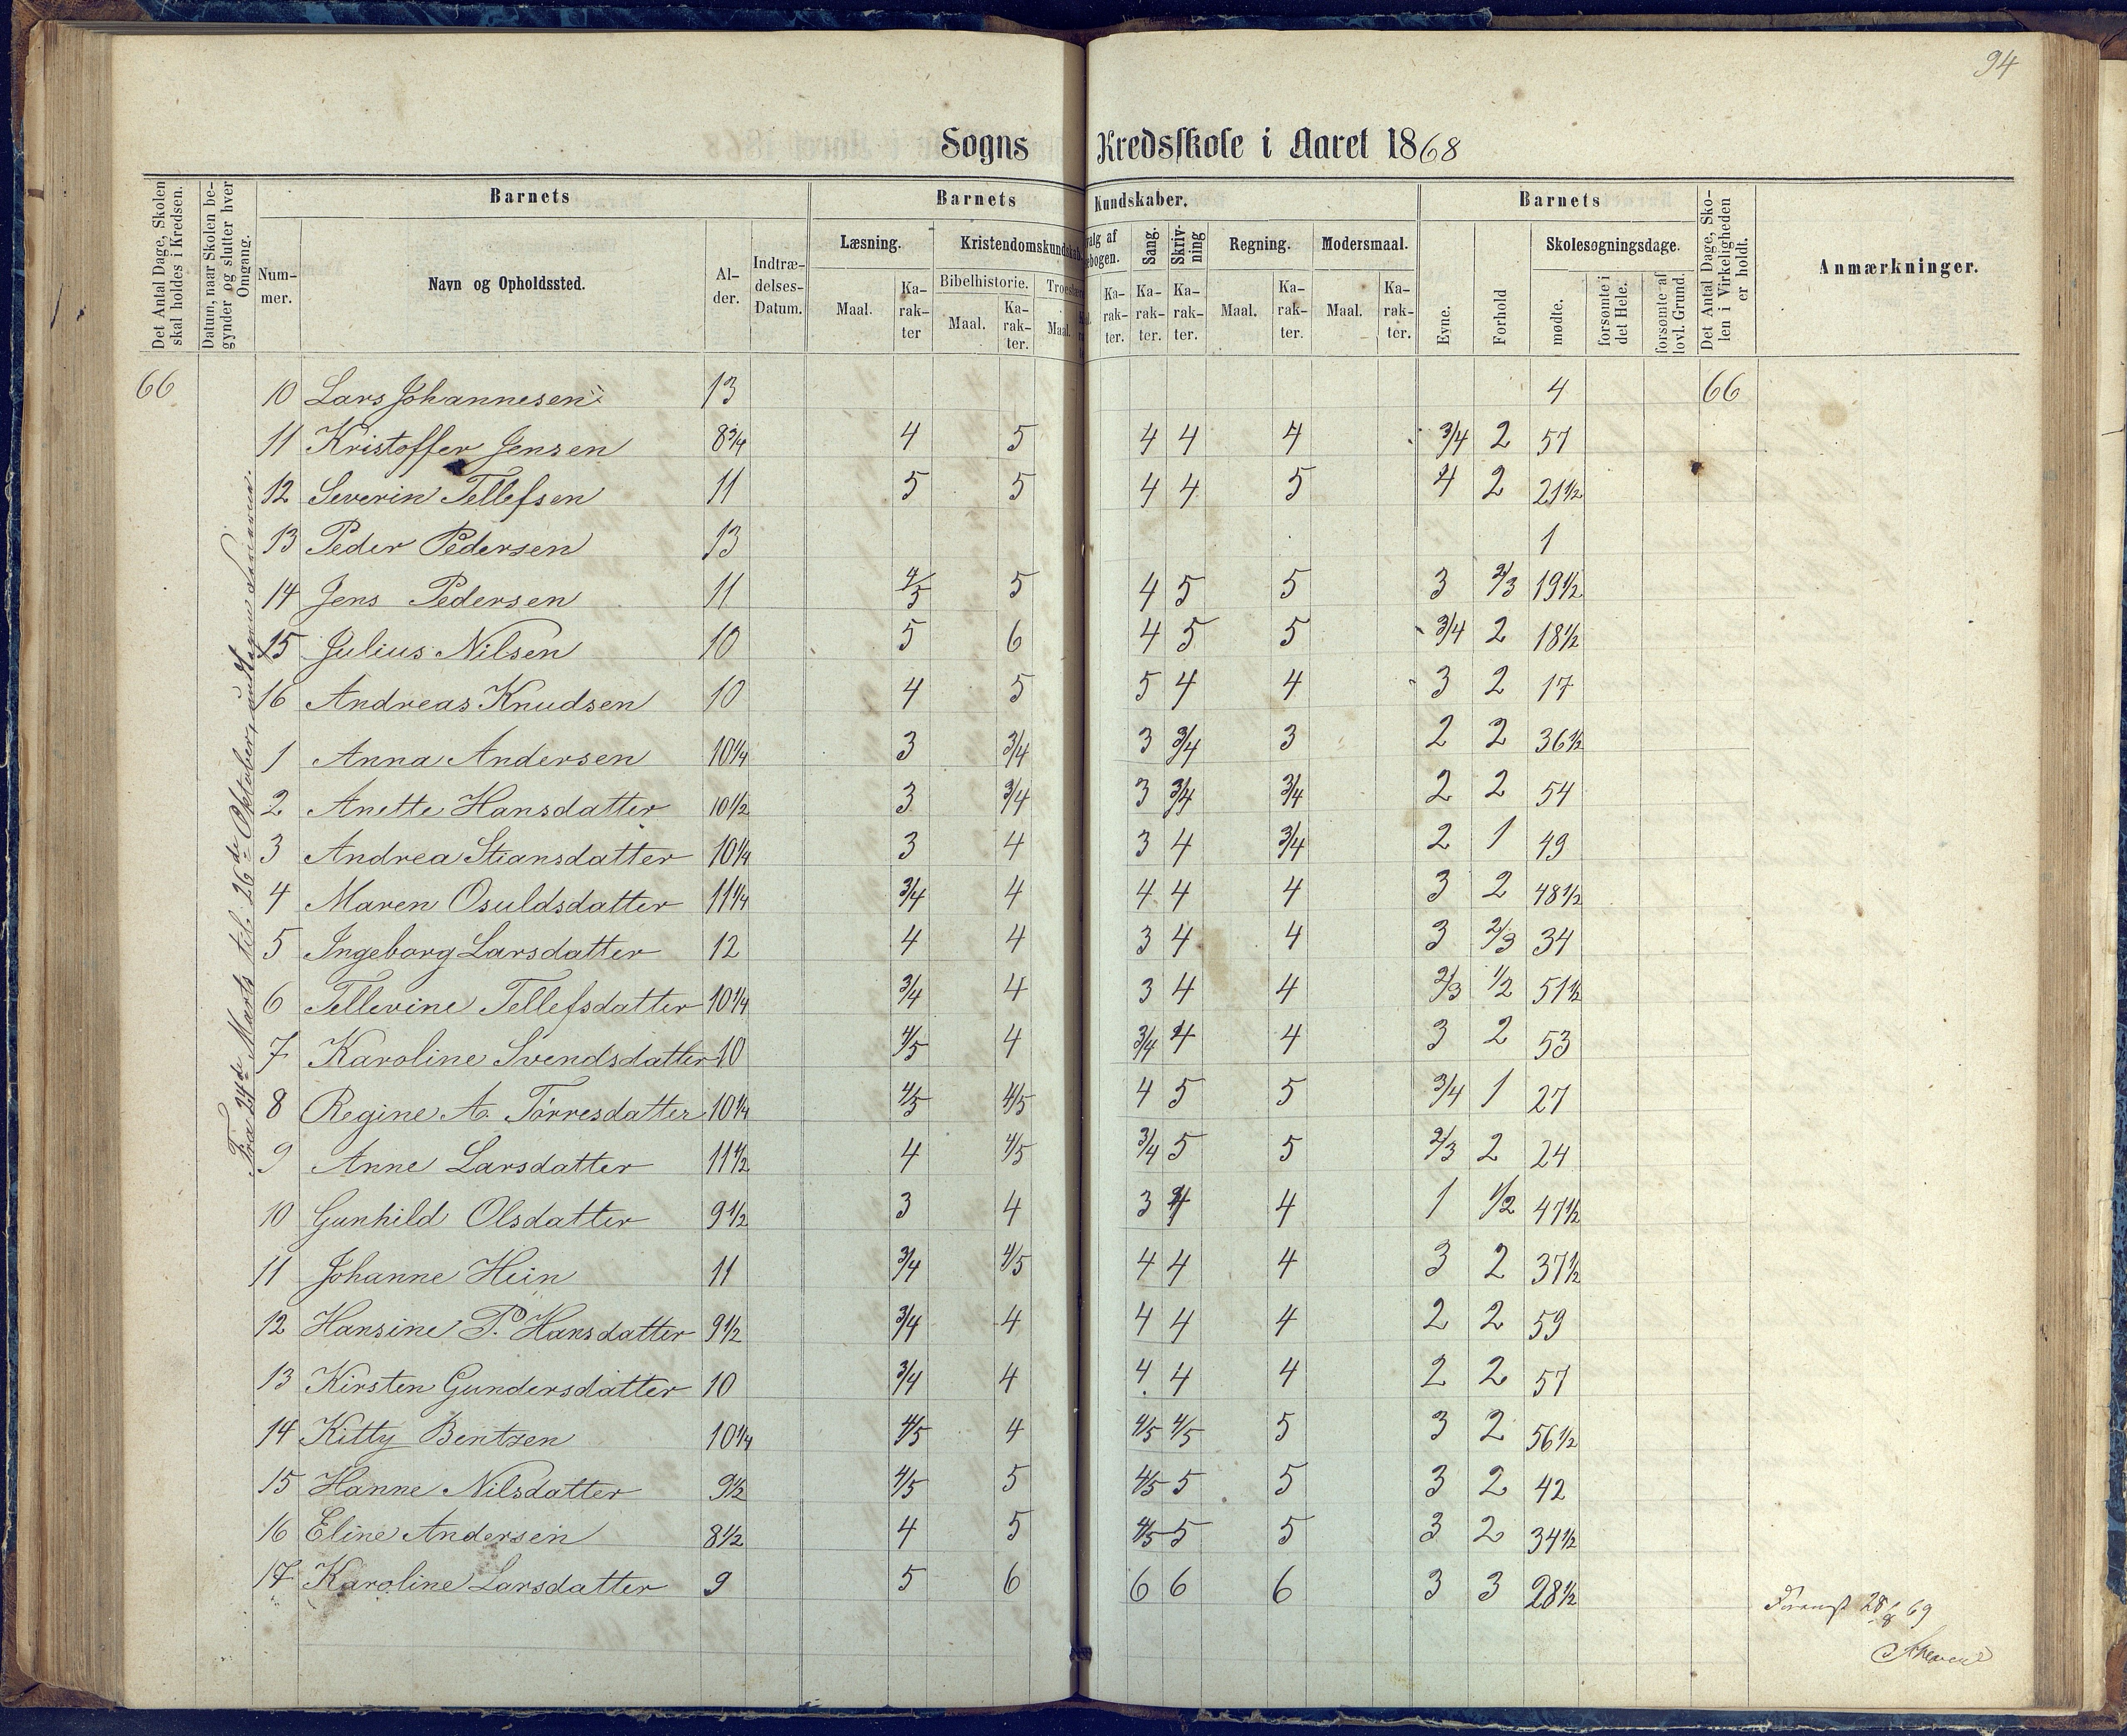 94
Sogns Kredsskole i Aaret 1868
Det Antal Dage, Skolen skal holdes i Kredsen.
Datum, naar Skolen begynder og slutter hver Omgang.
Barnets
Nummer.
Navn og Opholdssted.
Alder.
Indtrædelses-Datum.
Barnets Kundskaber.
Læsning.
Maal.
Karakter
Kristendomskundskab.
Bibelhistorie.
Maal.
Karakter.
Troeslære
Maal.
alg af
ebogen.
Karakter.
Sang.
Karakter.
Skrivning
Karakter.
Regning.
Maal.
Karakter.
Modersmaal.
Maal.
Karakter.
Barnets
Evne.
Forhold
Skolesøgningsdage.
mødte.
forsømte i det Hele.
forsømte af lovl. Grund.
Det Antal Dage, Skolen i Virkeligheden er holdt.
Anmærkninger.
Fra 24de Marts til 26de Oktober,
66 10 Lars Johannesen 13 4 66
11 Kristoffer Jensen 8 3/4 4 5 4 4 4 3/4 2 57
12 Severin Tellefsen 11 5 5 4 4 5 4 2 21 1/2
13 Peder Pedersen 13 1
14 Jens Pedersen 11 4/5 5 4 5 5 3 2/3 19 1/2
15 Julius Nilsen 10 5 6 4 5 5 3/4 2 18 1/2
16 Andreas Knudsen 10 4 5 5 4 4 3 2 17
1 Anna Andersen 10 1/4 3 3/4 3 3/4 3 2 2 36 1/2
2 Anette Hansdatter 10 1/2 3 3/4 3 3/4 3/4 2 2 54
3 Andrea Stiansdatter 10 1/4 3 4 3 4 3/4 2 1 49
4 Maren Osuldsdatter 11 1/4 3/4 4 4 4 4 3 2 48 1/2
5 Ingeborg Larsdatter 12 4 4 3 4 4 3 2/3 34
6 Tellevine Tellefsdatter 10 1/4 3/4 4 3 4 4 2/3 1/2 51 1/2
7 Karoline Svendsdatter 10 4/5 4 3/4 4 4 3 2 53
8 Regine A. Tørresdatter 10 1/4 4/5 4/5 4 5 5 3/4 1 27
9 Anne Larsdatter 11 1/2 4 4/5 3/4 5 5 2/3 2 24
10 Gunhild Olsdatter 9 1/2 3 4 3 4 4 1 1/2 47 1/2
11 Johanne Hein 11 3/4 4/5 4 4 4 3 2 37 1/2
12 Hansine P. Hansdatter 9 1/2 3/4 4 4 4 4 2 2 59
13 Kirsten Gundersdatter 10 3/4 4 4 4 4 2 2 57
14 Kitty Bentzen 10 1/4 4/5 4 4/5 4/5 5 3 2 56 1/2
15 Hanne Nilsdatter 9 1/2 4/5 5 4/5 5 5 3 2 42
16 Eline Andersen 8 1/2 4 5 4/5 5 5 3 2 34 1/2
17 Karoline Larsdatter 9 5 6 6 6 6 3 3 28 1/2
69